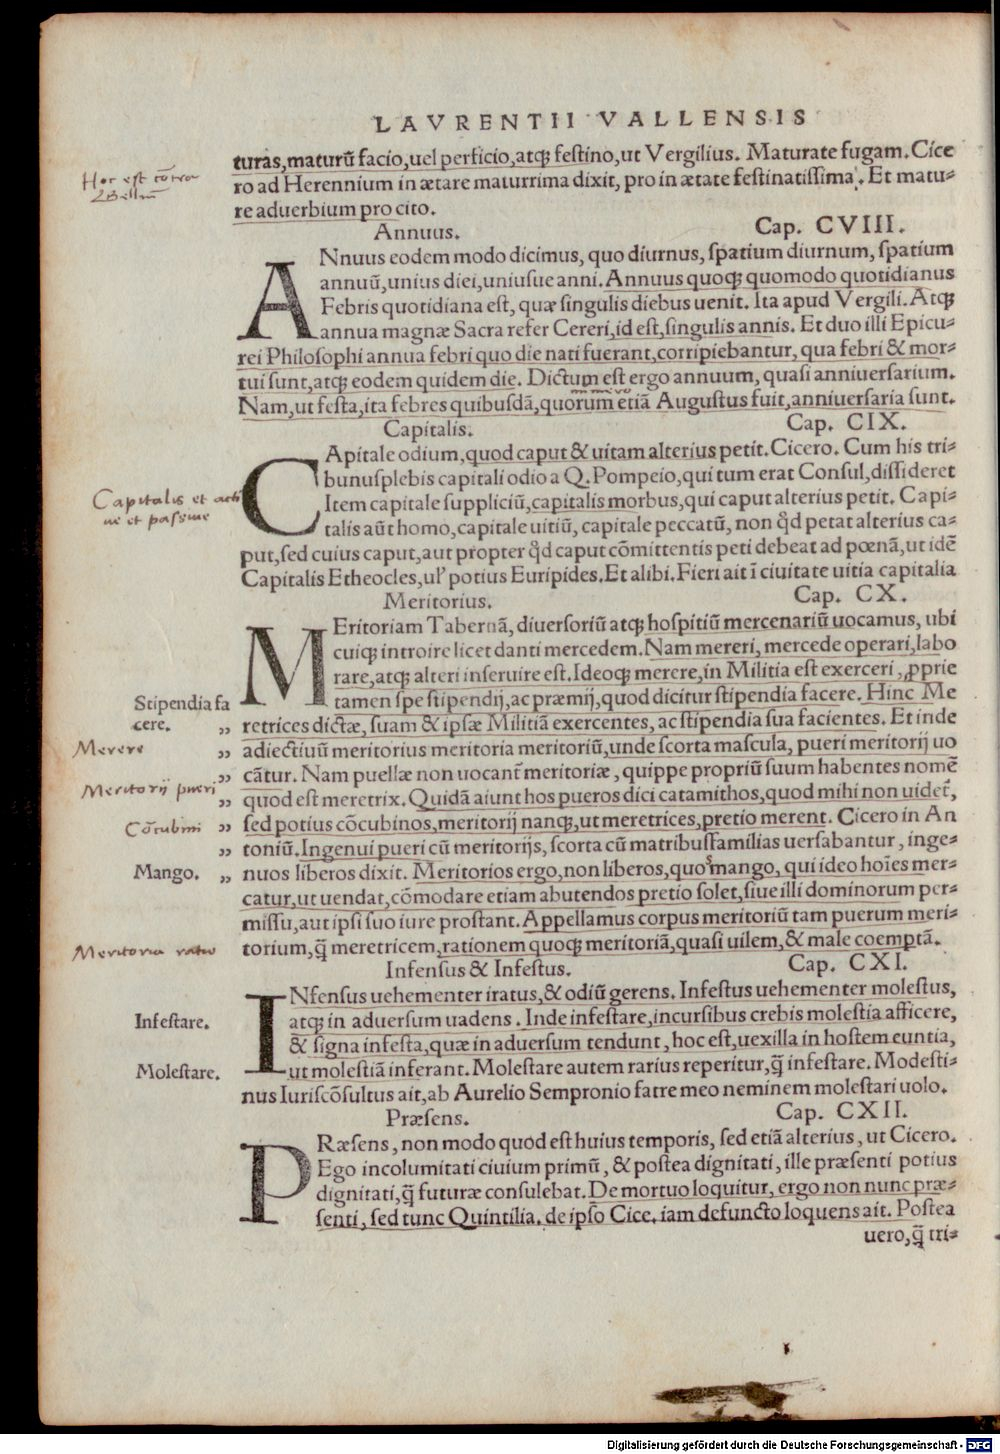 LAVRENTII VALLENSIS
turas,maturũ facio,uel perficio,atqꝫ festino,ut Vergilius. Maturate fugam. Cice
ro ad Herennium in ætate maturrima dixit, pro in ætate festinatissima. Et matu-
re aduerbium pro cito.
Annuus. Cap. CVIII.
ANnuus eodem modo dicimus, quo diurnus, spatium diurnum, spatium
annuũ,unius diei,uniusue anni. Annuus quoqꝫ quomodo quotidianus
Febris quotidiana est, quæ singulis diebus uenit. Ita apud Vergili. Atqꝫ
annua magnæ Sacra refer Cereri,id est,singulis annis. Et duo illi Epicu-
rei Philosophi annua febri quo die nati fuerant,corripiebantur, qua febri & mor-
tui sunt,atqꝫ eodem quidem die. Dictum est ergo annuum, quasi anniuersarium.
Nam,ut festa,ita febres quibusdã,quorum etiã Augustus fuit,anniuersaria sunt.
Capitalis. Cap. CIX.
CApitale odium,quod caput & uitam alterius petit. Cicero. Cum his tri-
bunusplebis capitali odio a Q. Pompeio,qui tum erat Consul,dissideret
Item capitale suppliciũ,capitalis morbus,qui caput alterius petit. Capi-
talis aũt homo,capitale uitiũ, capitale peccatũ, non ꝙd petat alterius ca-
put,sed cuius caput,aut propter ꝙd caput cõmittentis peti debeat ad pœnã,ut idẽ
Capitalis Etheocles,ul' potius Euripides.Et alibi.Fieri ait ĩ ciuitate uitia capitalia
Meritorius. Cap. CX.
MEritoriam Tabernã, diuersoriũ atqꝫ hospitiũ mercenariũ uocamus, ubi
cuiqꝫ introire licet danti mercedem. Nam mereri, mercede operari,labo
rare,atqꝫ alteri inseruire est. Ideoqꝫ merere,in Militia est exerceri, ꝓprie
tamen spe stipendij, ac præmij,quod dicitur stipendia facere. Hinc Me
retrices dictæ, suam & ipsæ Militiã exercentes, ac stipendia sua facientes. Et inde
adiectiuũ meritorius meritoria meritoriũ,unde scorta mascula, pueri meritorij uo
cãtur. Nam puellæ non uocant̃ meritoriæ, quippe propriũ suum habentes nomẽ
quod est meretrix. Quidã aiunt hos pueros dici catamithos,quod mihi non uidet̃,
sed potius cõcubinos,meritorij nanqꝫ,ut meretrices,pretio merent. Cicero in An
toniũ. Ingenui pueri cũ meritorijs, scorta cũ matribusfamilias uersabantur, inge-
nuos liberos dixit. Meritorios ergo,non liberos,quos mango, qui ideo hoĩes mer-
catur,ut uendat,cõmodare etiam abutendos pretio solet,siue illi dominorum per-
missu,aut ipsi suo iure prostant. Appellamus corpus meritoriũ tam puerum meri-
torium,q̃ meretricem,rationem quoqꝫ meritoriã,quasi uilem,& male coemptã.
Infensus & Infestus. Cap. CXI.
INfensus uehementer iratus,& odiũ gerens. Infestus uehementer molestus,
atqꝫ in aduersum uadens. Inde infestare,incursibus crebis molestia afficere,
& signa infesta,quæ in aduersum tendunt, hoc est,uexilla in hostem euntia,
ut molestiã inferant. Molestare autem rarius reperitur,q̃ infestare. Modesti-
nus Iuriscõsultus ait,ab Aurelio Sempronio fatre meo neminem molestari uolo.
Præsens. Cap. CXII.
PRæsens, non modo quod est huius temporis, sed etiã alterius, ut Cicero.
Ego incolumitati ciuium primũ, & postea dignitati, ille præsenti potius
dignitati,q̃ futuræ consulebat. De mortuo loquitur, ergo non nunc præ-
senti, sed tunc Quintilia. de ipso Cice. iam defuncto loquens ait. Postea
uero,q̃ tri-
Hoc est cõtra
Capitalis et acti
ue et passiue
Stipendia fa
cere. ,,
Merere ,,
,,
Meritorij pueri ,,
Cõcubini ,,
,,
Mango. ,,
Meritoria ratio
Infestare.
Molestare.
Digitalisierung gefördert durch die Deutsche Forschungsgemeinschaft - DFG